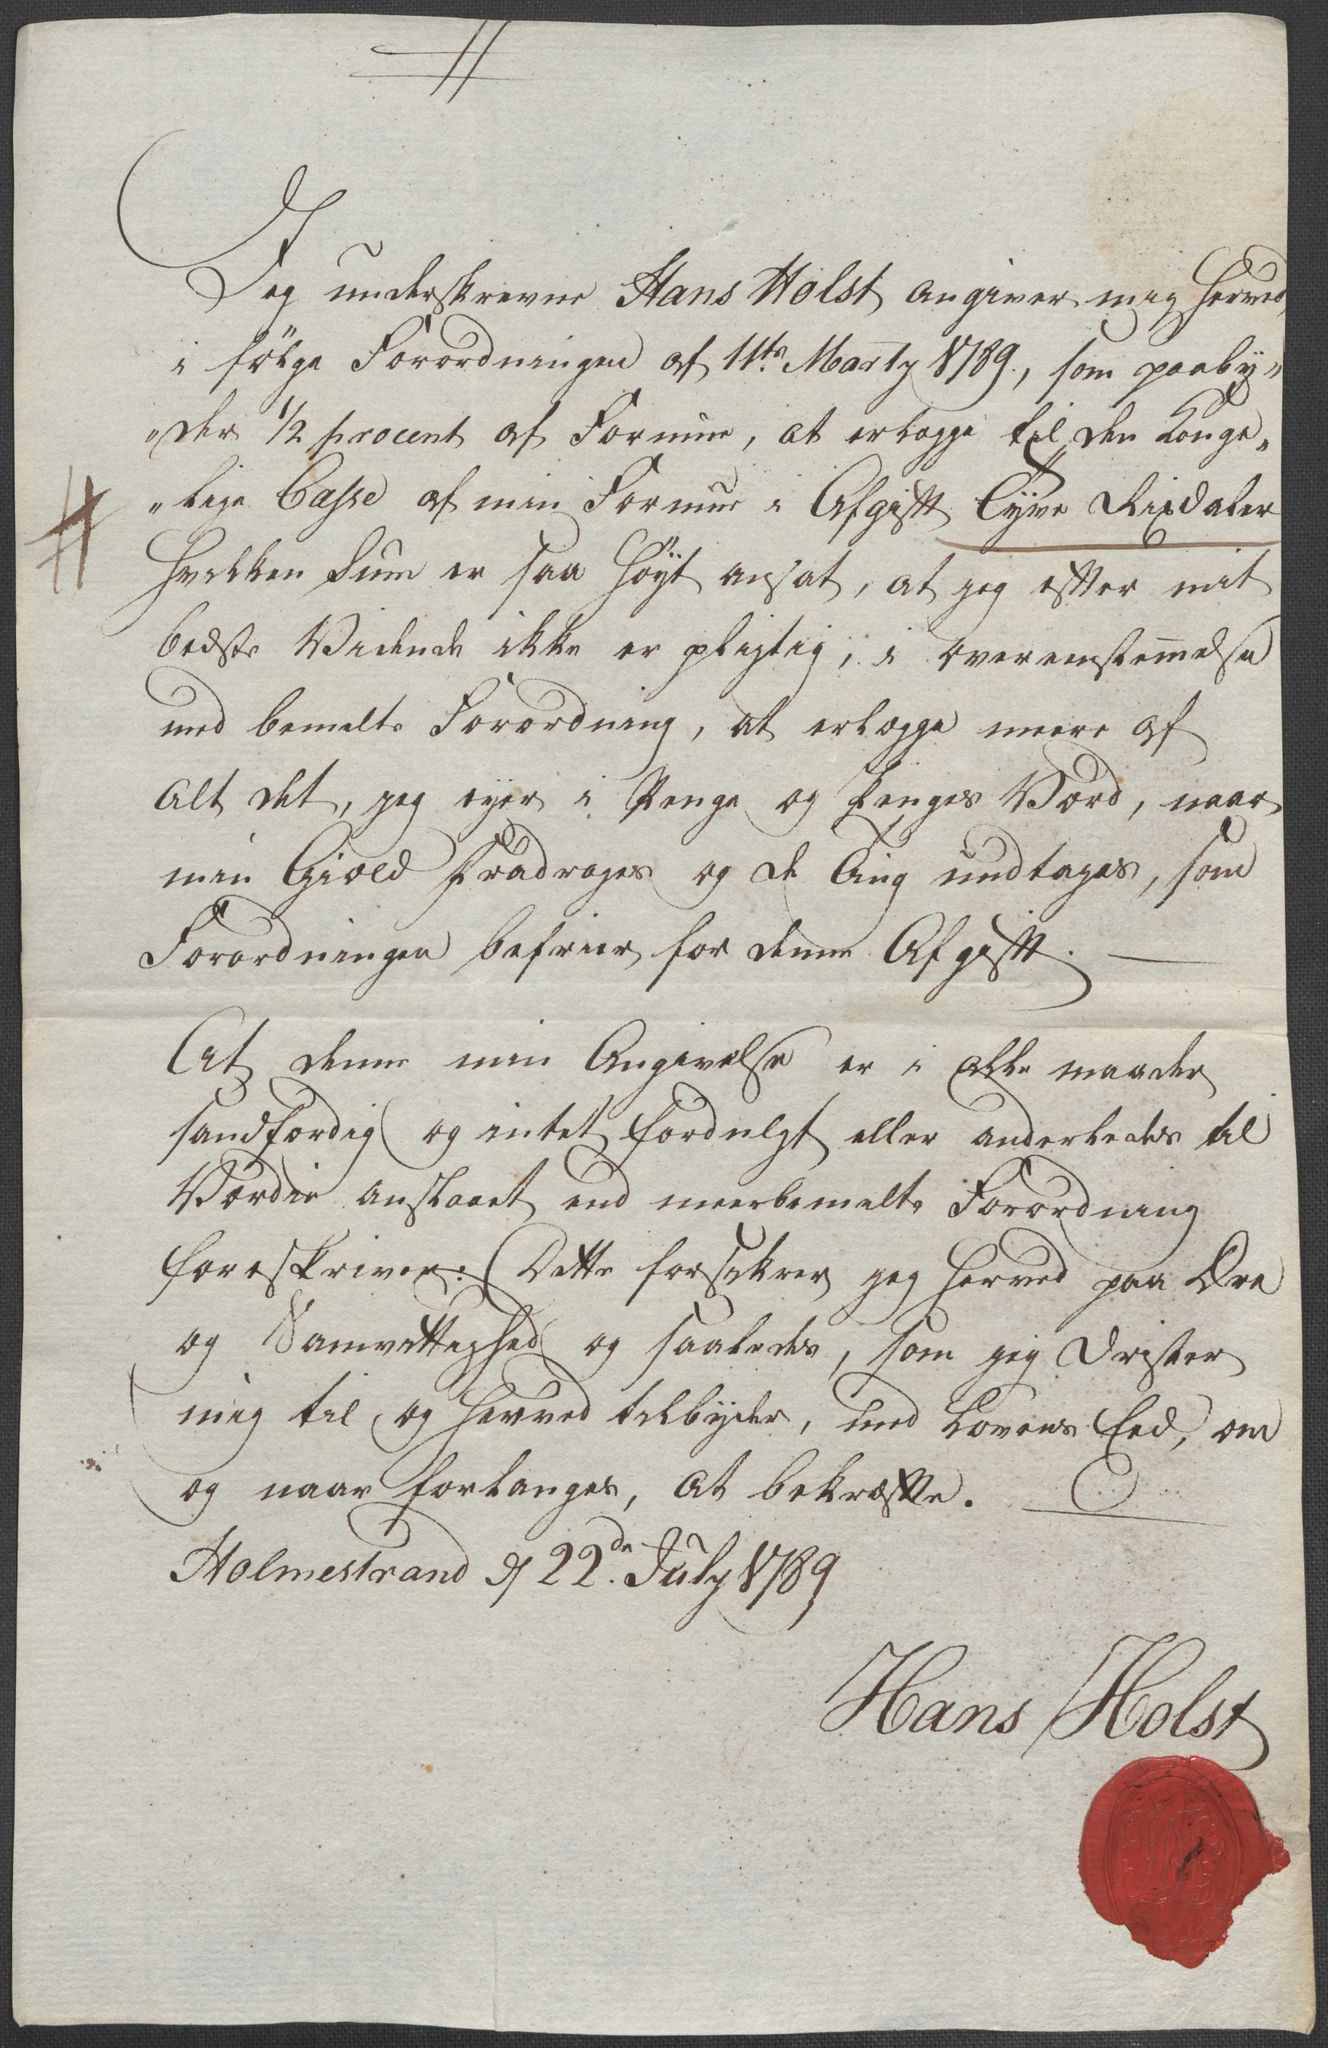 Jeg underskrevne Hans Holst angiver mig herved,
i fölge Forordningen af 11te Marty 1789., som paaby„
„der 1/2 procent af Formue, at erlegge til den Konge„
„lige Casse af min Formue i Afgift Tyve Rixdaler
hvilken Sum er saa höyt ansat, at jeg efter mit
bedste Vidende ikke er pligtig, i overeenstem̅else
med bemelte Forordning, at erlægge meere af
alt det, jeg eyer i Penge og Penges Værd, naar
min Giæld fradrages og de Ting undtages, som
Forordningen befrier for denne Afgift. —
At denne min Angivelse er i alle maader
sandfærdig og intet fordulgt eller anderledes til
Værdie anslaaet end meerbemelte Forordning
foreskriver: Dette forsikrer jeg herved paa Ære
og Samvittighed og saaledes, som jeg drister
mig til og herved tilbyder, med Lovens Eed, om
og naar forlanges, at bekræfte.
Holmestrand d 22de July 1789
Hans Holst